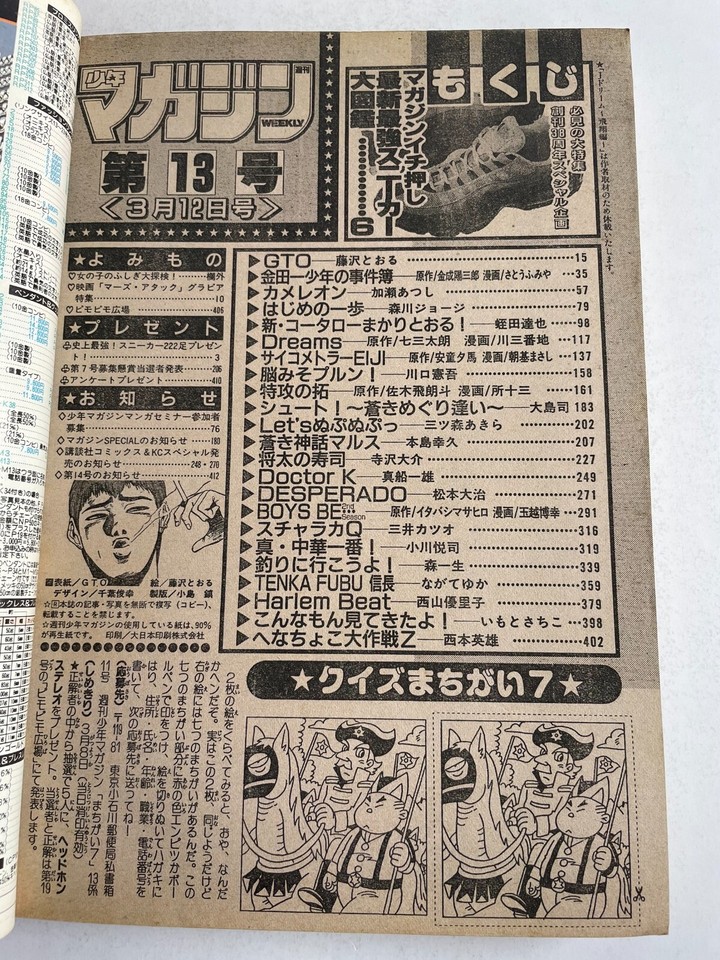 少年
マガジン
週刊
WEEKLY
第13号
<3月12日号>
もくじ
必見の大特集
創刊38周年スペシャル企画
マガジンイチ押し
最新最強スニーカー
大図鑑…………6
は作者取材のため休載いたします。
★よみもの
♡女の子のふしぎ大探検!………欄外
♡映画「マーズ・アタック」グラビア
特集………10
♡ピモピモ広場………406
★プレゼント
♧史上最強!スニーカー222足プレゼン
ト!………3
♧第7号募集懸賞当選者発表………206
♧アンケートプレゼント………410
★お知らせ
◇少年マガジンマンガセミナー参加者
募集………76
◇マガジンSPECIALのお知らせ………180
◇講談社コミックス&KCスペシャル発
売のお知らせ………248・270
◇第14号のお知らせ………412
表紙/GTO 絵/藤沢とおる
デザイン/千葉俊幸 製版/小島 鎮
☆本誌の記事・写真を無断で複写(コピー)、
転載することを禁じます。
☆週刊少年マガジンの使用している紙は、90%
が再生紙です。 印刷/大日本印刷株式会社
▶GTO 藤沢とおる………15
▶金田一少年の事件簿——原作/金成陽三郎 漫画/さとうふみや…35
▶カメレオン——加瀬あつし………57
▶はじめの一歩——森川ジョージ………79
▶新・コータローまかりとおる!——蛭田達也…98
▶Dreams——原作/七三太朗 漫画/川三番地…117
▶サイコメトラーEIJI——原作/安童夕馬 漫画/朝基まさし…137
▶脳みそプルン!——川口憲吾………158
▶特攻の拓——原作/佐木飛朗斗 漫画/所十三…161
▶シュート!〜蒼きめぐり逢い〜——大島司 183
▶Let'sぬぷぬぷっ——三ツ森あきら………202
▶蒼き神話マルス——本島幸久………207
▶将太の寿司——寺沢大介………227
▶Doctor K——真船一雄………249
▶DESPERADO——松本大治………271
▶BOYS BE… 2nd Season 原作/イタバシマサヒロ 漫画/玉越博幸…291
▶スチャラカQ——三井カツオ………316
▶真・中華一番!——小川悦司………319
▶釣りに行こうよ!——森一生………339
▶TENKA FUBU 信長——ながてゆか………359
▶Harlem Beat——西山優里子………379
▶こんなもん見てきたよ!——いもとさちこ…398
▶へなちょこ大作戦Z——西本英雄………402
★クイズまちがい7★
2枚の絵をくらべてみると、おや、なんだ
かヘンだぞ。実はこの2枚、同じようだけど
右の絵には七つのまちがいがあるんだ。この
七つのまちがい部分に赤の色エンピツかボー
ルペンで印をつけ、絵を切りぬいてハガキに
はり、住所・氏名・年齢・職業、電話番号を
書いて、次の応募先に送ってね!
(応募先)〒119-81 東京小石川郵便局私書箱
11号 週刊少年マガジン「まちがい7」13係
(しめきり)3月20日(当日消印有効)
★正解者の中から抽選で5人に、ヘッドホン
ステレオをプレゼント。当選者と正解は第19
号の「ピモピモ広場」にて発表します。